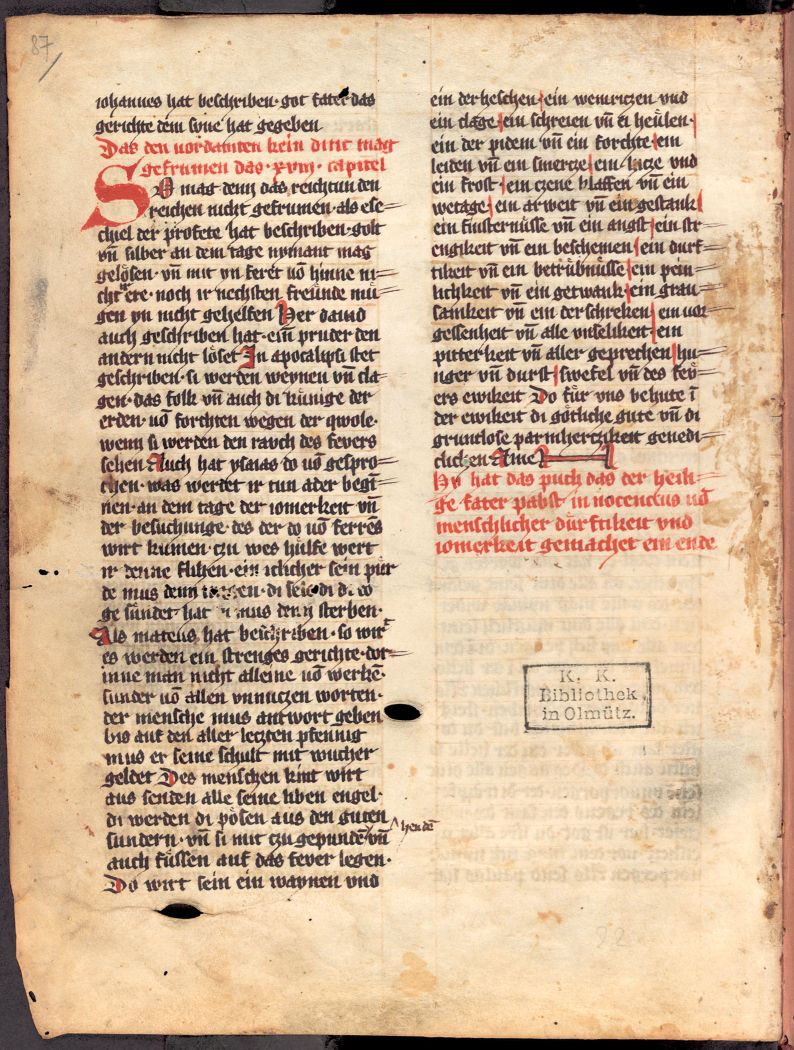 87
iohannes hat beschriben· got fater das
gerichte dem sune hat gegeben
Das den vordamten kein dinc mag
gefrumen das ·xviij· capitel
SO mag denn das reichtun den
reichen nicht gefrumen· als eze-
chiel der profete hat beschriben· golt
vn̄ silber an dem tage nymant mag
gelösen· vn̄ mit yn feret uō hinne ni-
cht ere· noch ir nechsten freünde mü-
gen yn nicht gehelfen Her dauid
auch geschriben hat· ein pruder den
andern nicht löset In apocalipsi stet
geschriben· si werden weynen vn̄ cla-
gen· das folk vn̄ auch di künige der
erden· uō forchten wegen der qwole·
wenn si werden den rauch des feuers
sehen Auch hat ysaias do uō gespro-
chen· was werdet ir tun ader begī-
nen· an dem tage der iomerkeit vn̄
der besuchunge· des der do uō ferres
wirt kumen· czu wes hülfe wert
ir denne flihen· ein iclicher sein pür
de mus denn tragen· di sele di do
gesünder hat mus denn sterben·
Als mateus hat beschriben· so wirt
es werden ein strenges gerichte· dor-
inne man nicht alleine uō werkē·
sunder uō allen vnnuczen worten·
der mensche mus antwort geben
bis auf den aller leczten pfennig
mus er seine schult mit wucher
geldet Des menschen kint wirt
aus senden alle seine liben engel·
di werden di pösen aus den guten
sundern· vn̄ si mit czu gepundē vn̄ hendē
auch füssen auf das fever legen·
Do wirt sein ein waynen vnd
ein derheschen ein weinriczen vnd
ein clage ein schreien vn̄ ei heülen·
ein der pidem vn̄ ein forchte ein
leiden vn̄ ein smercze ein hicze vnd
ein frost ein czene klaffen vn̄ ein
wetage ein arweit vn̄ ein gestank
ein finsternüsse vn̄ ein angst ein str-
engikeit vn̄ ein beschemen ein durf-
tikeit vn̄ ein betrübnüsse ein pein-
lichkeit vn̄ ein getwank ein grau-
samkeit vn̄ ein derschreken ein uor-
gessenheit vn̄ alle vnselikeit· ein
pitterkeit vn̄ aller geprechen hu-
nger vn̄ durst swefel vn̄ des feü-
ers ewikeit Do für vns behute ī
der ewikeit di götliche gute vn̄ di
gruntlose parmherczikeit genedi-
clichen Ame
Hy hat das puch das der heili-
ge fater pabst in nocencius uō
menschlicher dürftikeit vnd
iomerkeit gemachet ein ende
K. K.
Bibliothek
in Olmütz.
22